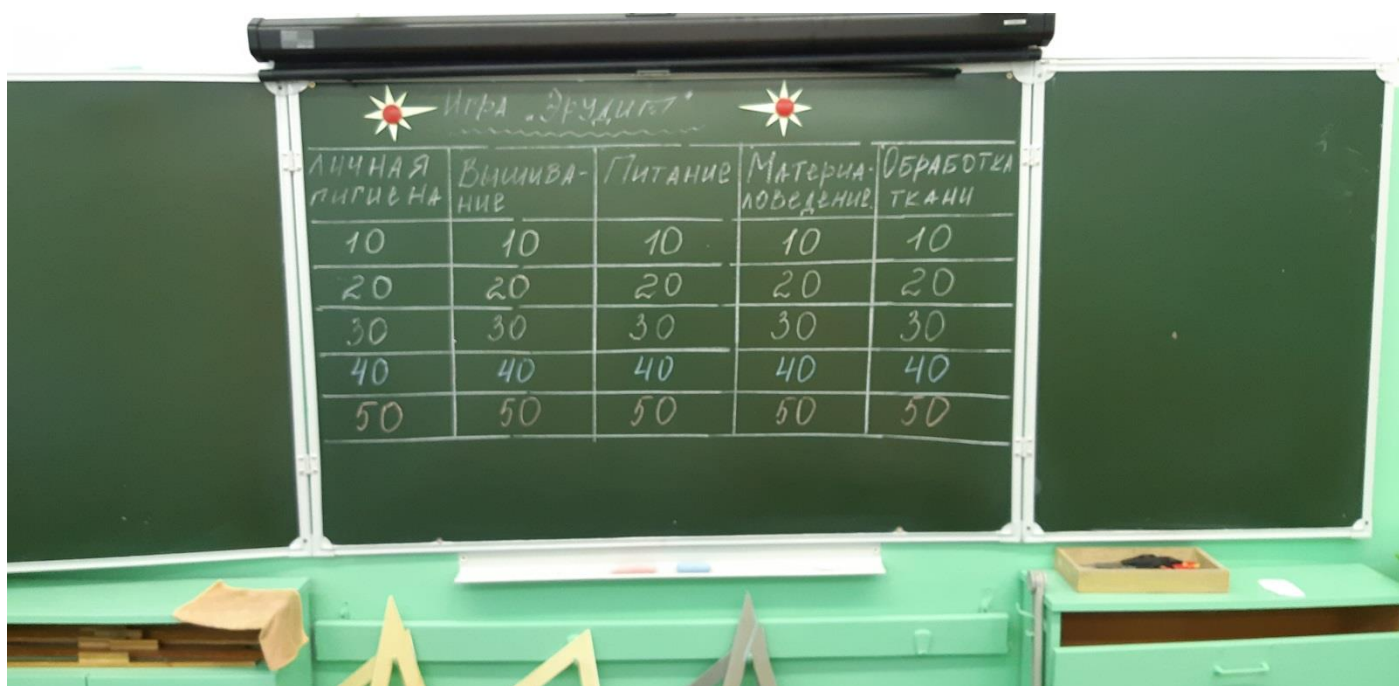 Игра „Эрудит"
Личная гигиена Вышива- ние Питание Материа- ловедение Обработка ткани
10 10 10 10 10
20 20 20 20 20
30 30 30 30 30
40 40 40 40 40
50 50 50 50 50